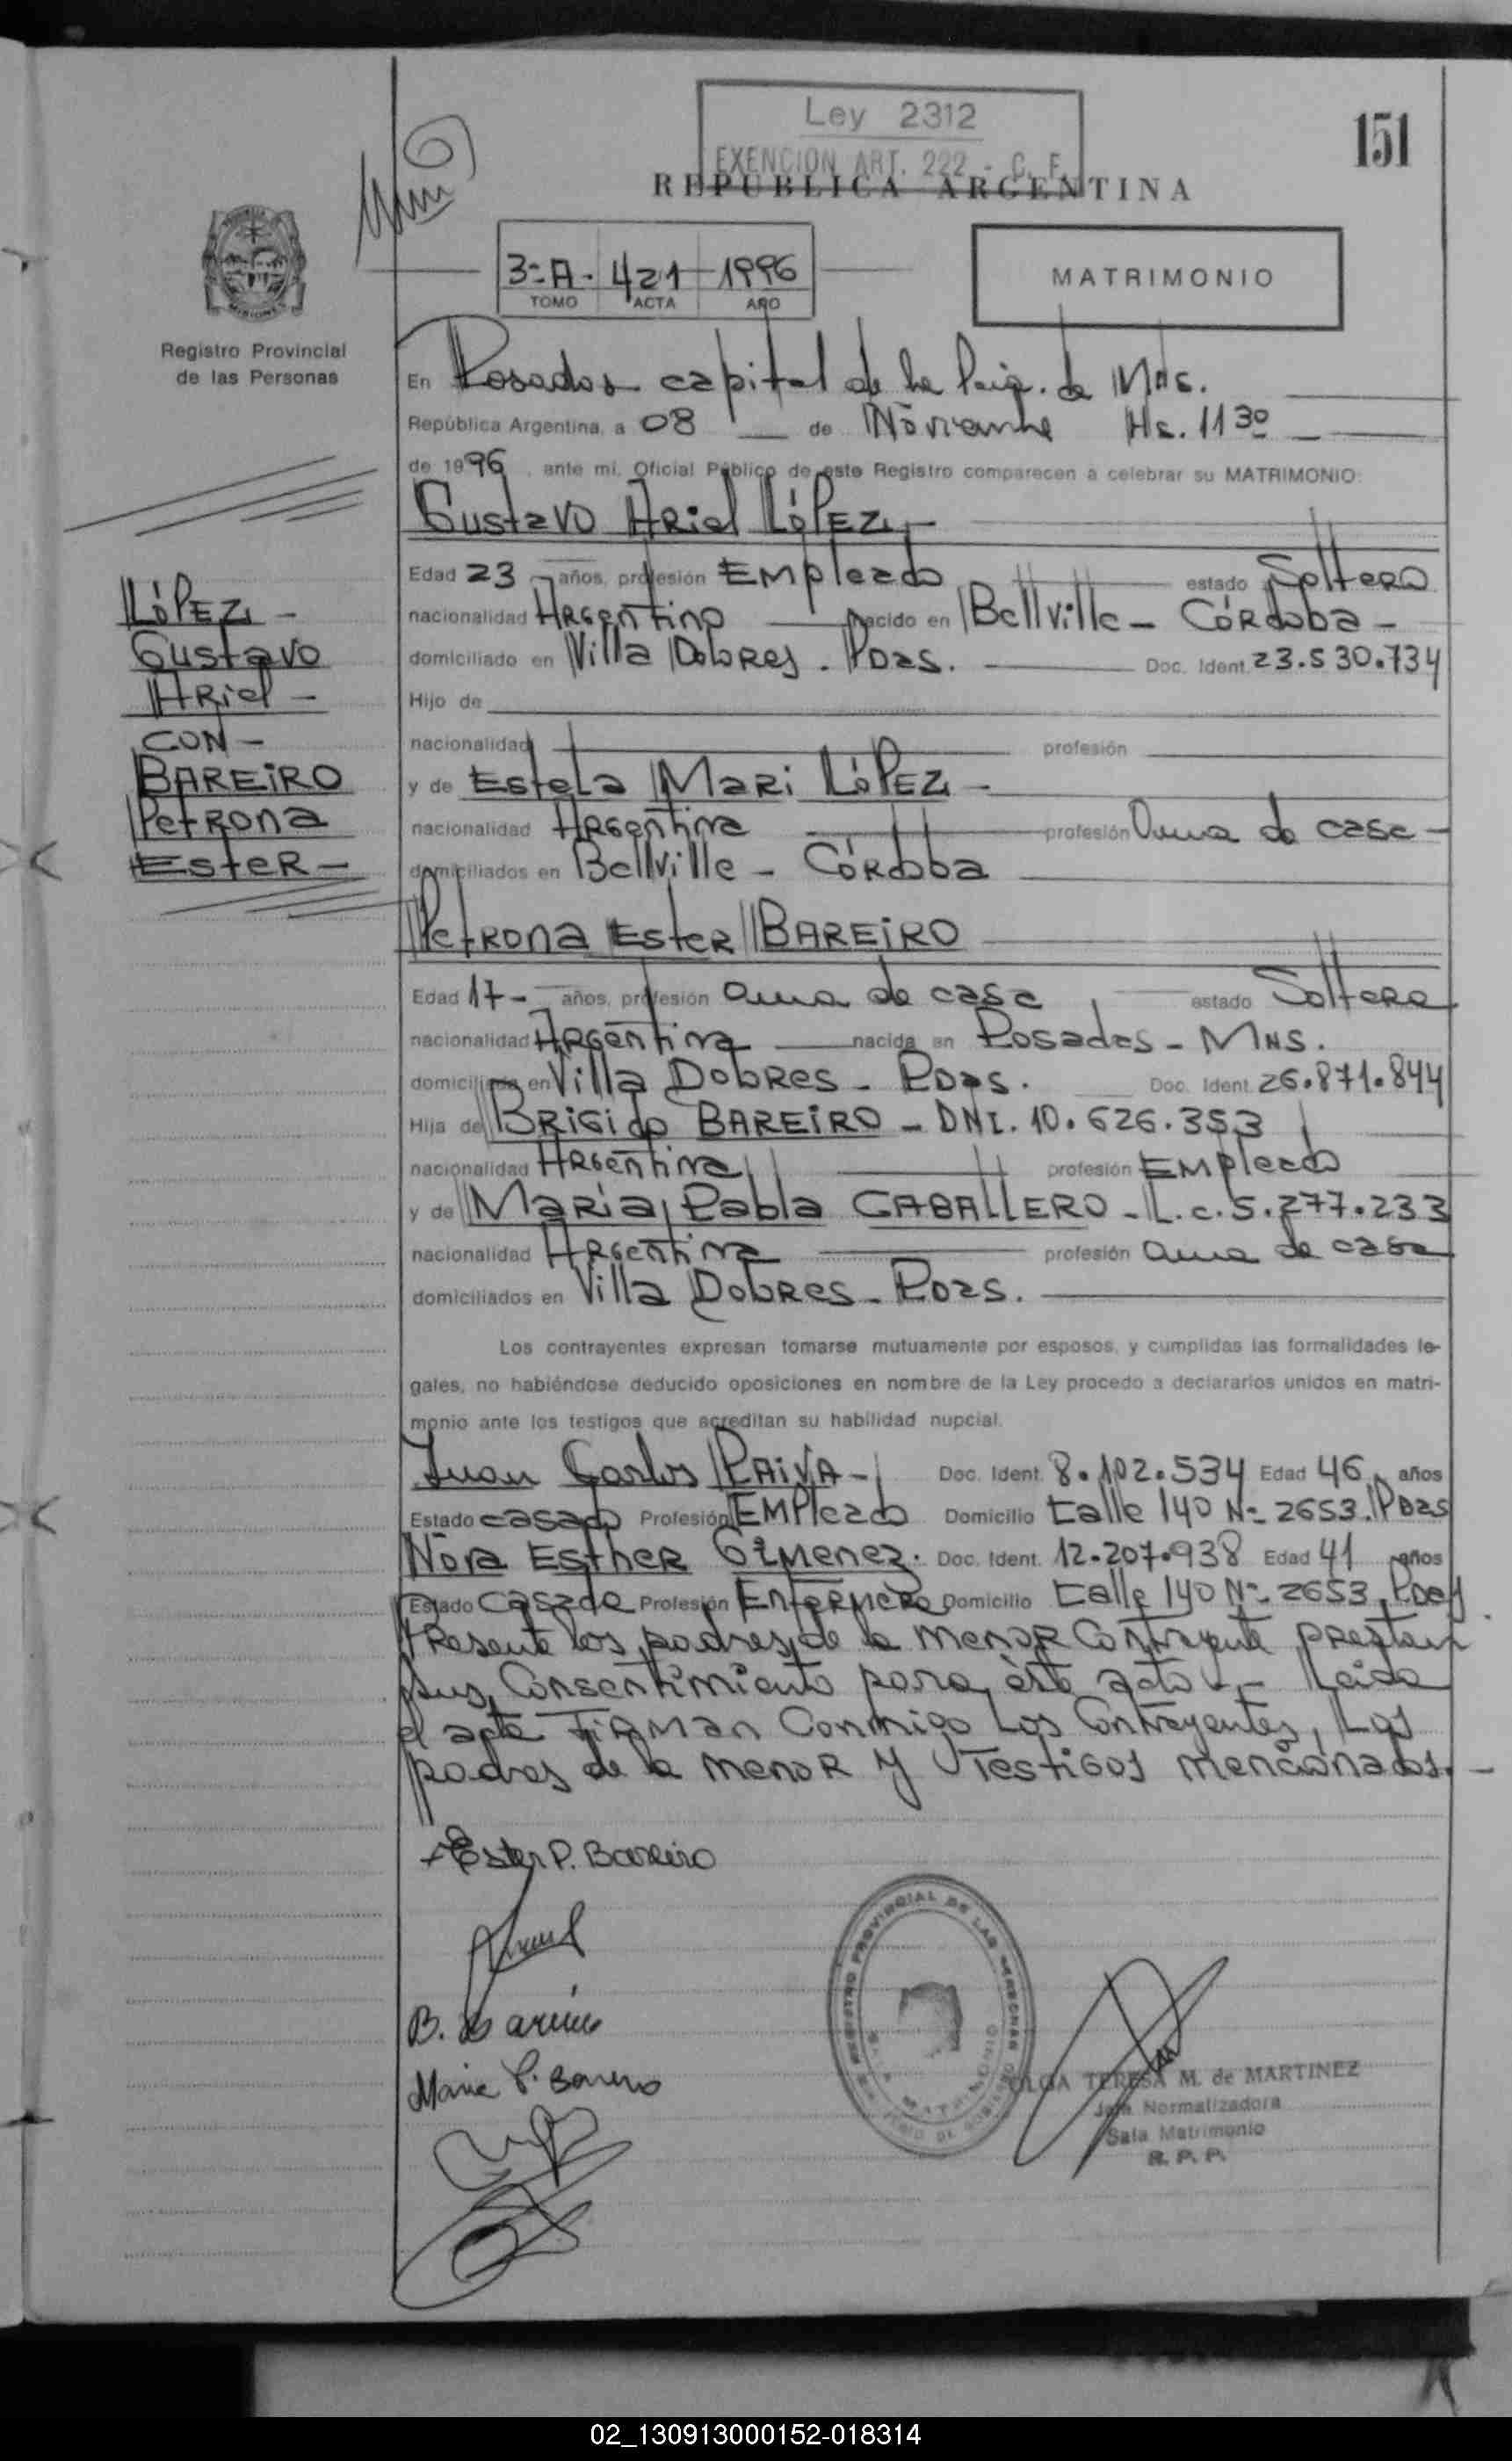 Ley 2312
EXENCION ART. 222 - C. F.
151
REPUBLICA ARGENTINA
3º A - 421 1996
TOMO ACTA AÑO
MATRIMONIO
Registro Provincial
de las Personas
En Posadas capital de la de Mns.
República Argentina, a 08 de Noviembre Hs. 11 30
de 1996, ante mi, Oficial Público de este Registro comparecen a celebrar su MATRIMONIO:
Gustavo Ariel LÓPEZ -
Edad 23 - años, profesión Empleado estado Soltero
nacionalidad Argentino nacido en Bellville - Córdoba -
domiciliado en Villa Dolores - Pdas. Doc. Ident. 23.530.734
Hijo de
nacionalidad profesión
y de Estela Mari LÓPEZ -
nacionalidad Argentina profesión Ama de casa -
domiciliados en Bellville - Córdoba
LÓPEZ -
Gustavo
Ariel -
CON -
BAREIRO
Petrona
Ester -
Petrona Ester BAREIRO
Edad 17 - años, profesión ama de casa estado Soltera
nacionalidad Argentina nacida en Posadas - Mns.
domiciliada en Villa Dolores - Pdas. Doc. Ident. 26.871.844
Hija de Brigido BAREIRO - DNI. 10.626.353
nacionalidad Argentina profesión Empleado
y de Maria Pabla CABALLERO - L.c. 5.277.233
nacionalidad Argentina profesión ama de casa
domiciliados en Villa Dolores - Pdas.
Los contrayentes expresan tomarse mutuamente por esposos, y cumplidas las formalidades le-
gales, no habiéndose deducido oposiciones en nombre de la Ley procedo a declararlos unidos en matri-
monio ante los testigos que acreditan su habilidad nupcial.
Juan Carlos PAIVA - Doc. Ident. 8.102.534 Edad 46 años
Estado casado Profesión Empleado Domicilio Calle 140 Nº 2653. Pdas
Nora Esther Gimenez. Doc. Ident. 12.207.938 Edad 41 años
Estado Casada Profesión Enfermera Domicilio Calle 140 Nº 2653
Presente los padres de la menor Contrayente prestan
sus Consentimiento para éste acto. - Leida
el acta Firman Conmigo Los Contrayentes, Los
padres de la menor y Testigos mencionados. -
Ester P. Bareiro
B. Bareiro
Maria P. Bareiro
REGISTRO PROVINCIAL DE LAS PERSONAS
SALA MATRIMONIO
OLGA TERESA M. de MARTINEZ
Jefa Normalizadora
Sala Matrimonio
R. P. P.
02_130913000152-018314